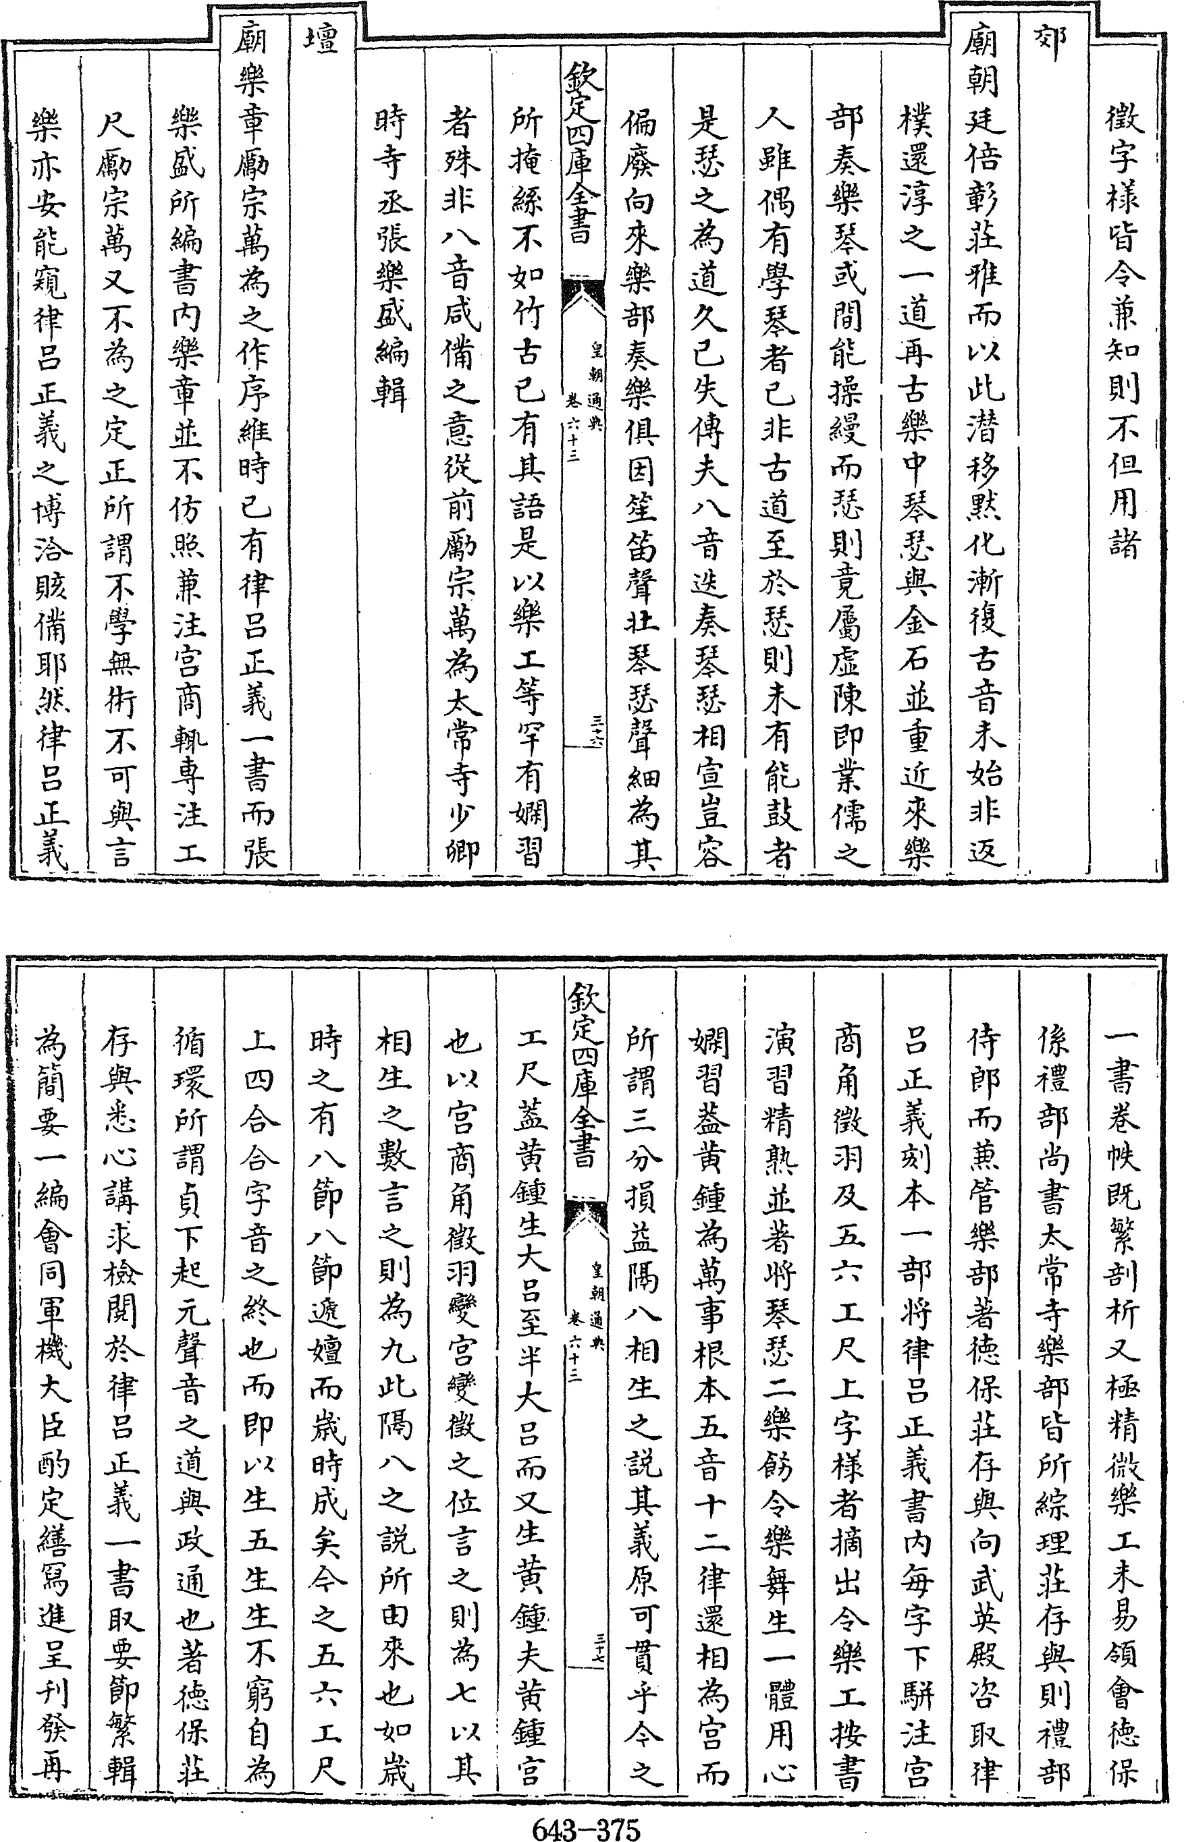 徵字様皆令兼知則不但用諸
郊
廟朝廷倍彰莊雅而以此潜移黙化漸復古音未始非返
樸還淳之一道再古樂中琴瑟與金石並重近來樂
部奏樂琴或間能操縵而瑟則竟屬虛陳即業儒之
人雖偶有學琴者已非古道至於瑟則未有能鼓者
是瑟之為道久已失傳夫八音迭奏琴瑟相宣豈容
偏廢向來樂部奏樂俱因笙笛聲壯琴瑟聲細為其
欽定四庫全書
皇朝通典
卷六十三
三十六
所掩絲不如竹古已有其語是以樂工等罕有嫻習
者殊非八音咸備之意從前勵宗萬為太常寺少卿
時寺丞張樂盛編輯
壇
廟樂章勵宗萬為之作序維時已有律吕正義一書而張
樂盛所編書内樂章並不仿照兼注宫商輒專注工
尺勵宗萬又不為之定正所謂不學無術不可與言
樂亦安能窺律吕正義之博洽賅備耶然律吕正義
一書卷帙既繁剖析又極精微樂工未易領會徳保
係禮部尚書太常寺樂部皆所綜理莊存與則禮部
侍郎而兼管樂部著徳保莊存與向武英殿咨取律
吕正義刻本一部将律吕正義書内每字下駢注宫
商角徵羽及五六工尺上字様者摘出令樂工按書
演習精熟並著将琴瑟二樂飭令樂舞生一體用心
嫻習葢黄鍾為萬事根本五音十二律還相為宫而
所謂三分損益隔八相生之説其義原可貫乎今之
欽定四庫全書
皇朝通典
卷六十三
三十七
工尺葢黄鍾生大吕至半大吕而又生黄鍾夫黄鍾宫
也以宫商角徵羽變宫變徵之位言之則為七以其
相生之數言之則為九此隔八之説所由來也如嵗
時之有八節八節遞嬗而嵗時成矣今之五六工尺
上四合合字音之終也而即以生五生生不窮自為
循環所謂貞下起元聲音之道與政通也著徳保莊
存與悉心講求檢閲於律吕正義一書取要節繁輯
為簡要一編會同軍機大臣酌定繕寫進呈刋發再
643-375